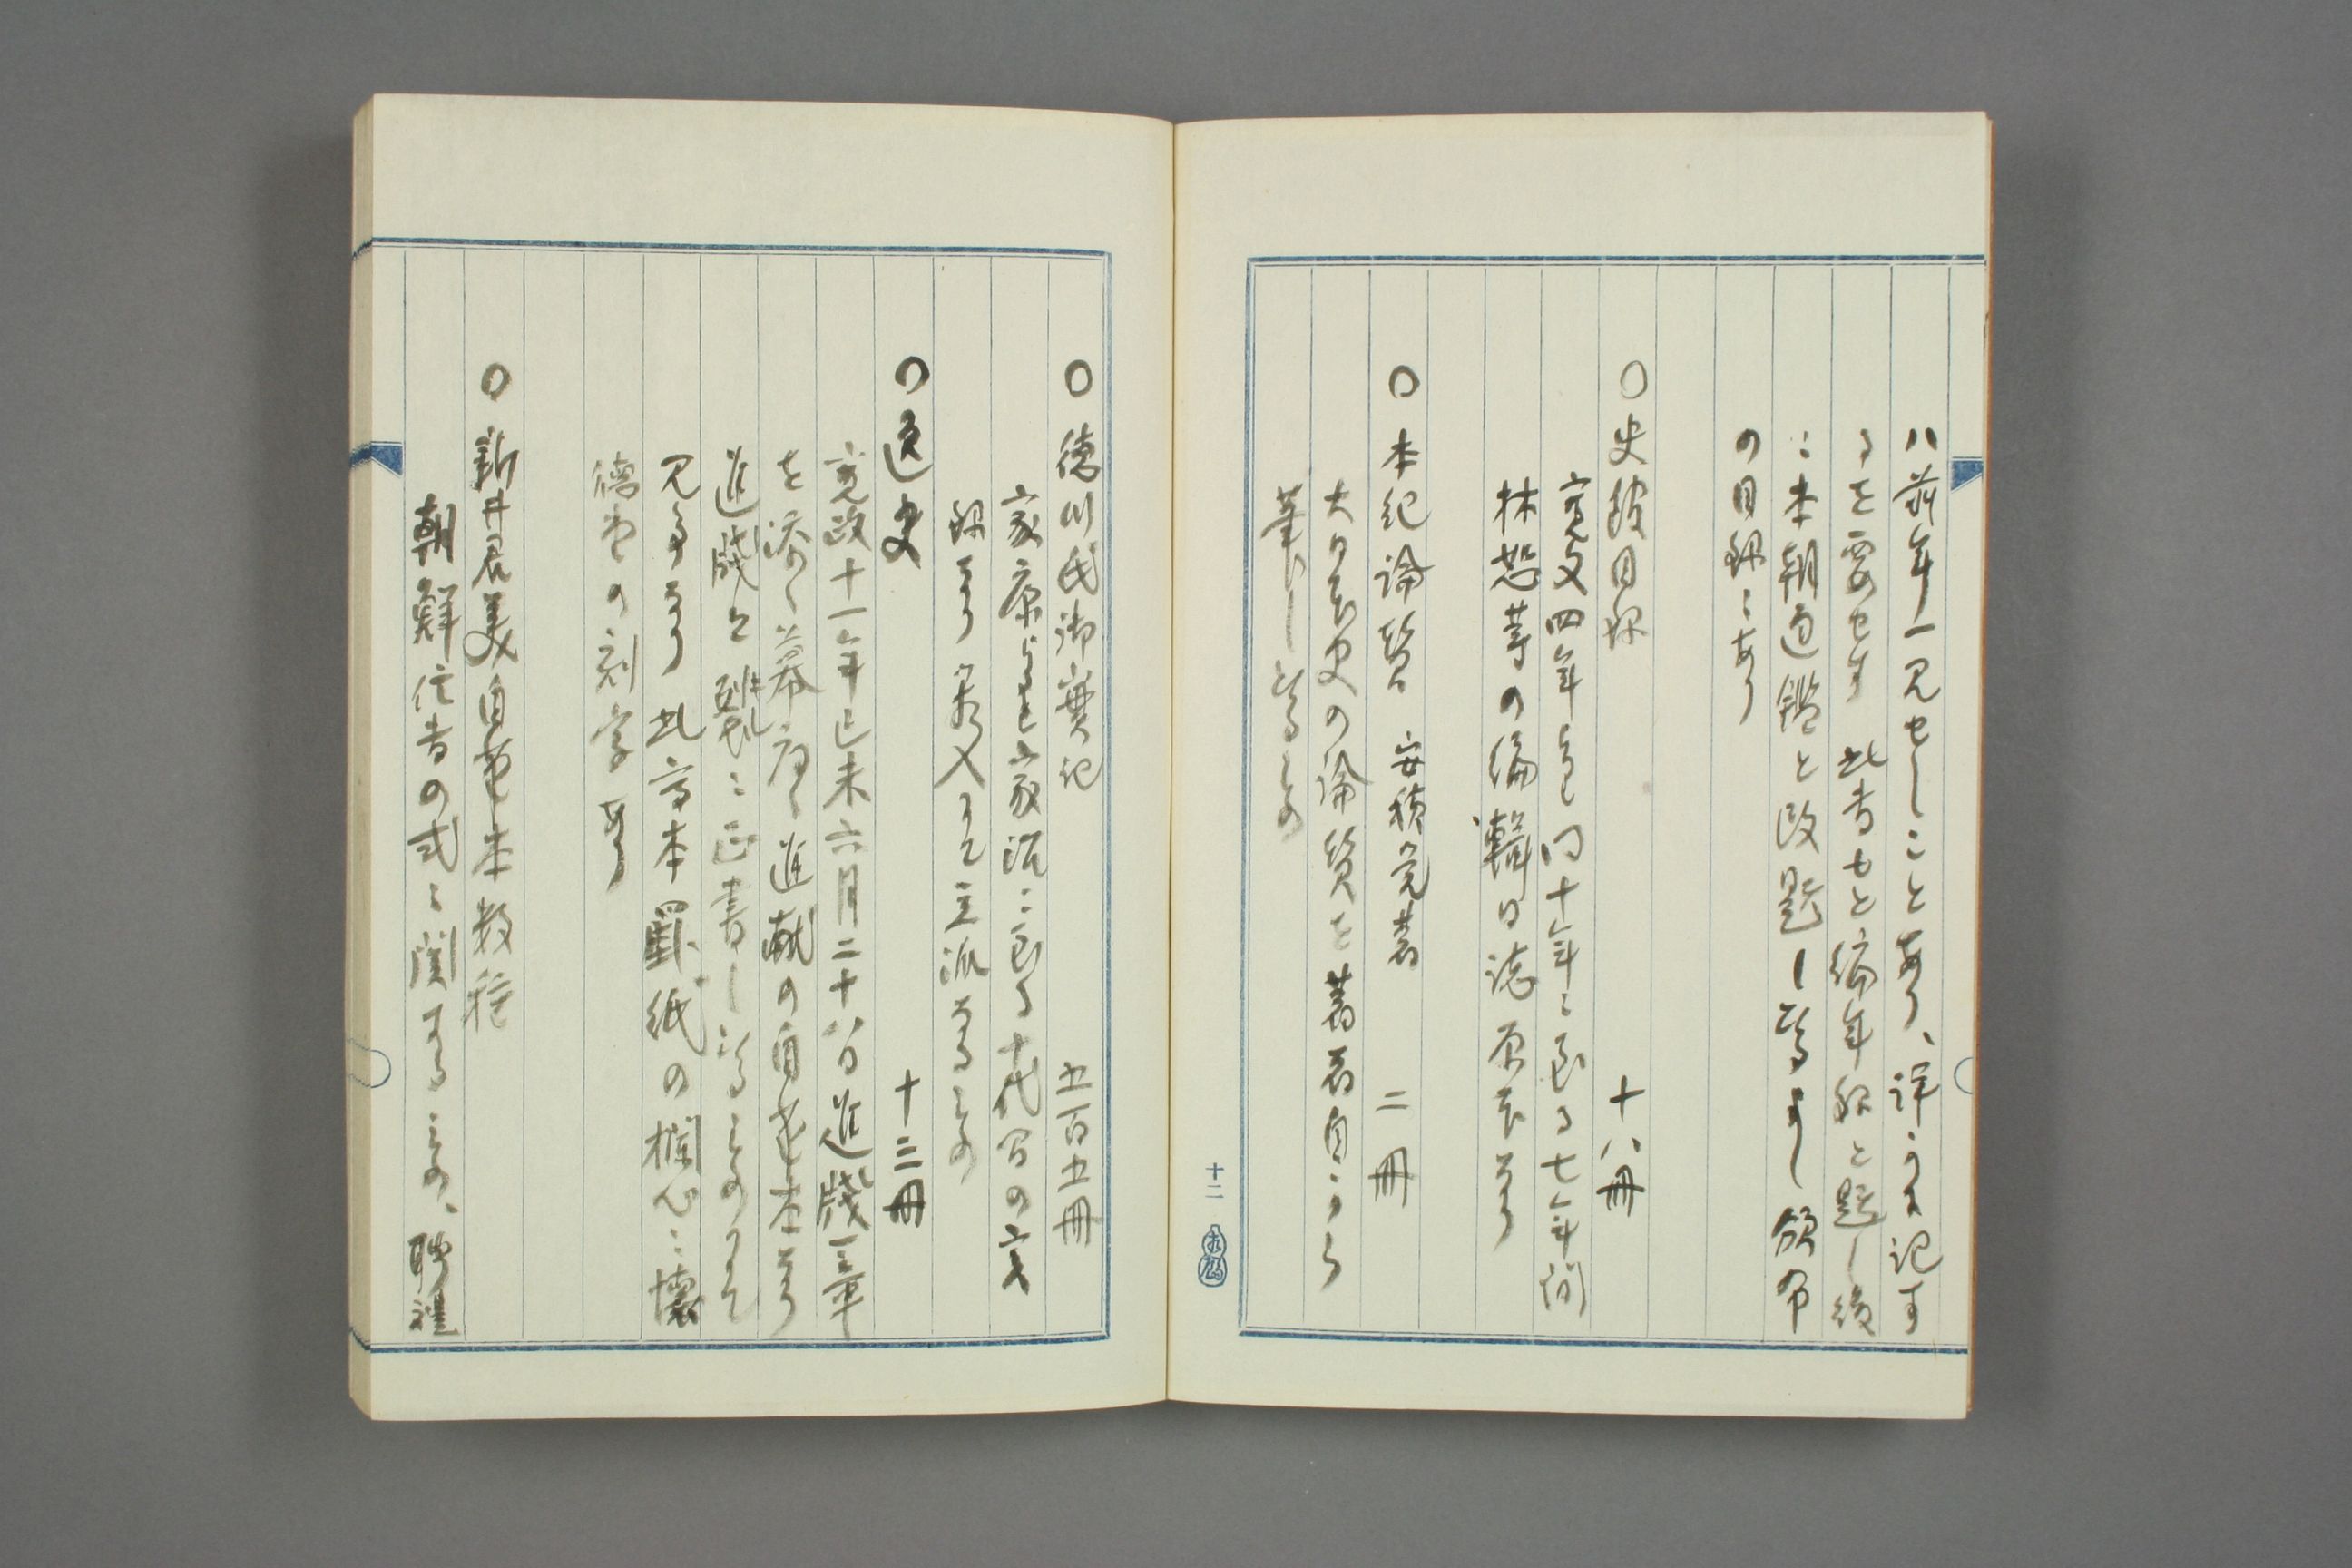 ハ前年一見せしことあり、詳しくは記す
るを要せす 此書もと編年録と題し後
ニ本朝通鑑と改題し
の目録ニあり
○史館日録 十八冊
寛文四年より同十年ニ至る七年間
林恕等の編輯日誌原本なり
○本紀論賛 安積覚著 二冊
大日本史の論賛を著者自ら
筆したるもの
十二
○徳川氏御実記 五百五冊
家康より家治ニ至る十代間の実
録なり 箱入りて立派なるもの
○逸史 十三冊
寛政十一年己未六月二十八日進牋一章
を添へ幕府へ進献の自筆本なり
進牋を
見事なり 此高本罫紙の欄心ニ懐
徳堂の刻字あり
○新井君美自筆本数種
朝鮮信書の式に関するもの、聘礼